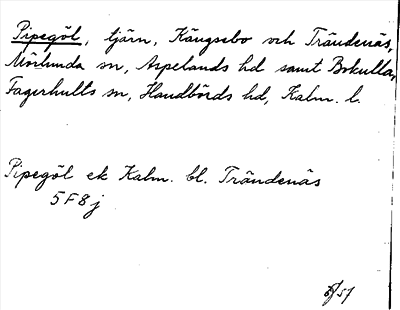 Pipegöl, tjärn, Kängsebo och Trändenäs,
Mörlunda sn, Aspelands hd samt Bokulla,
Fagerhults sn, Handbörds hd, Kalm. l.
Pipegöl ek Kalm. bl. Trändenäs
5F8j
/57